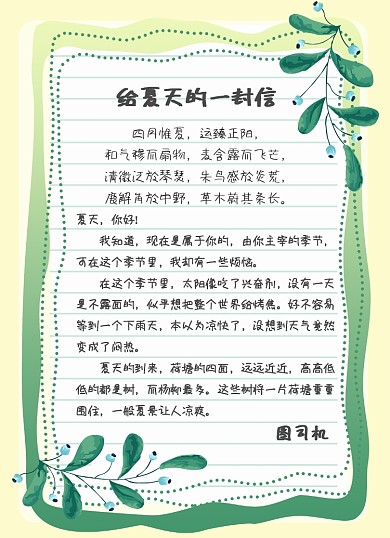 给夏天的一封信
四月惟夏，运臻正阳，
和气穆而扇物，麦含露而飞芒，
清徵泛於琴瑟，朱鸟感於炎荒，
鹿解角於中野，草木蔚其条长。
夏天，你好！
我知道，现在是属于你的，由你主宰的季节，
可在这个季节里，我却有一些烦恼。
在这个季节里，太阳像吃了兴奋剂，没有一天
是不露面的，似乎想把整个世界给烤焦。好不容易
等到一个下雨天，本以为凉快了，没想到天气竟然
变成了闷热。
夏天的到来，荷塘的四面，远远近近，高高低
低的都是树，而杨柳最多。这些树将一片荷塘重重
围住，一般夏景让人凉爽。
图司机